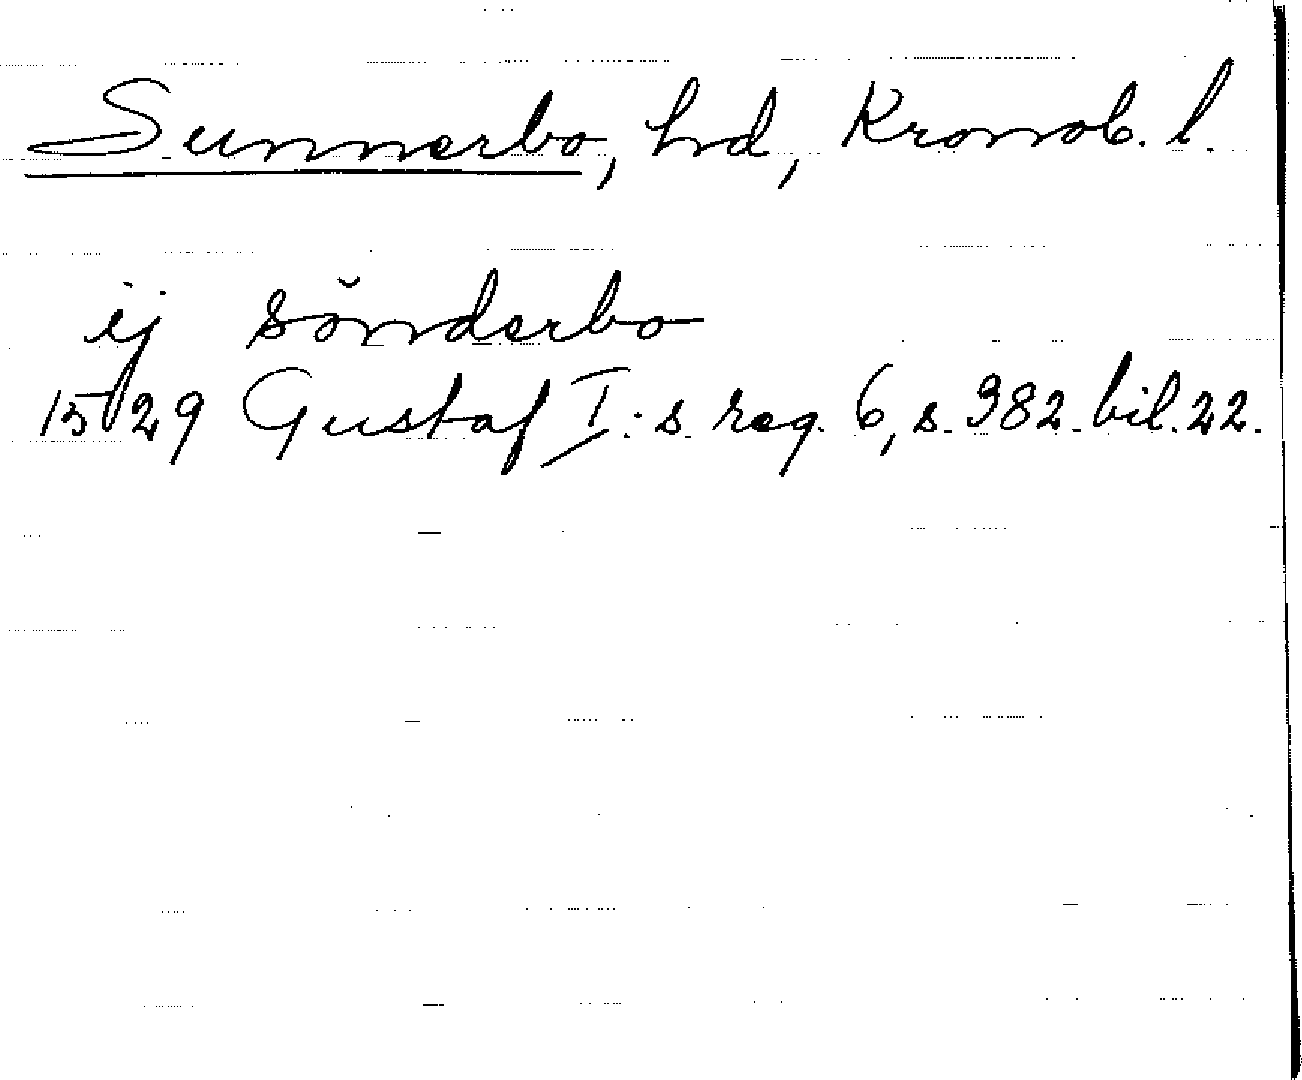 Sunnerbo, hd, Kronob. l.
ij sŏnderbo
1529 Gustaf I:s reg. 6, s. 382 bil. 22.